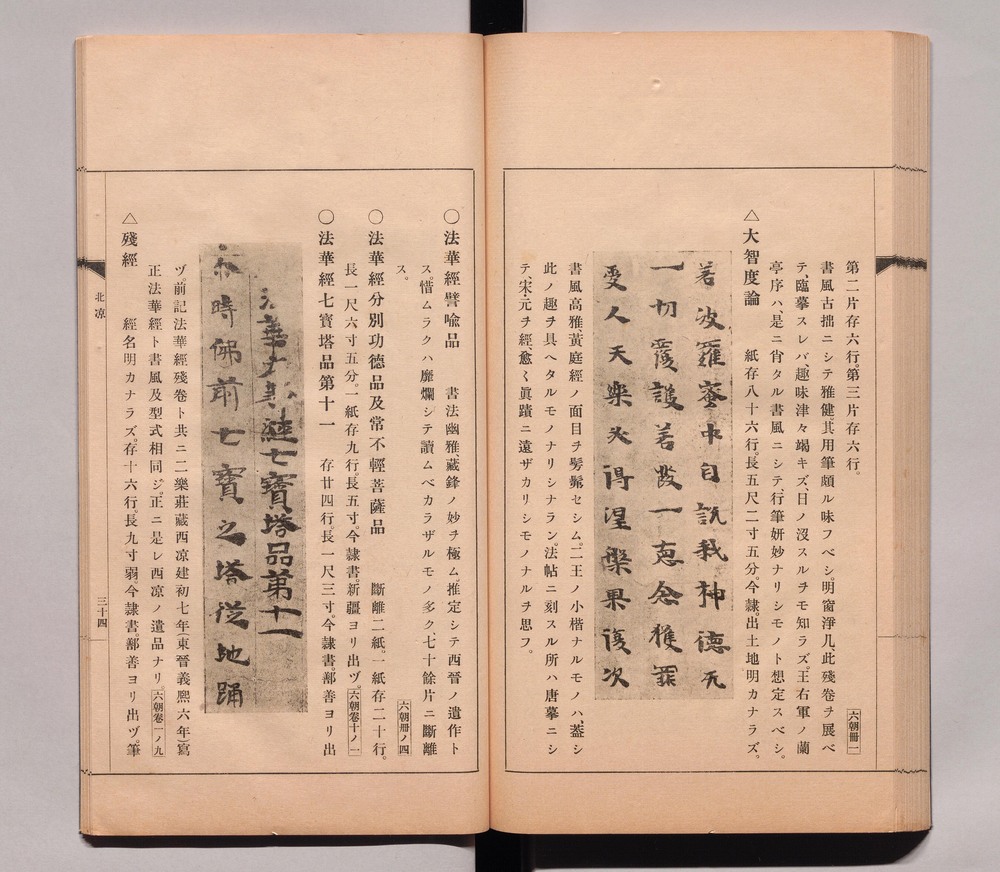 第二片存六行。第三片存六行。
六朝冊一
書風古拙ニシテ雅健、其用筆頗ル味フベシ。明窗淨几、此殘卷ヲ展ベ
テ、臨摹スレバ、趣味津々竭キズ、日ノ沒スルヲモ知ラズ。王右軍ノ蘭
亭序ハ、是ニ肖タル書風ニシテ行筆妍妙ナリシモノト想定スベシ。
△大智度論 紙存八十六行。長五尺二寸五分。今隷。出土地明カナラズ。
若波羅蜜中自説我神德无
一切覆護若發一惡念獲罪
受人天樂火得涅槃果復次
書風高雅、黃庭經ノ面目ヲ髣髴セシム。二王ノ小楷ナルモノハ、蓋シ
此ノ趣ヲ具ヘタルモノナリシナラン。法帖ニ刻スル所ハ唐摹ニシ
テ、宋元ヲ經、愈〱眞蹟ニ遠ザカリシモノナルヲ思フ。
〇法華經譬喩品 書法幽雅、藏鋒ノ妙ヲ極ム。推定シテ西晉ノ遺作ト
ス。惜ムラクハ靡爛シテ讀ムベカラザルモノ多ク、七十餘片ニ斷離
ス。
六朝冊ノ四
〇法華經分別功德品及常不輕菩薩品 斷離二紙。一紙存二十行。
長一尺六寸五分。一紙存九行。長五寸。今隷書。新疆ヨリ出ヅ。六朝卷十ノ一
〇法華經七寶塔品第十一 存廿四行。長一尺三寸。今隷書。鄯善ヨリ出
七寶塔品第十一
時佛前七寶之塔從地踊
ヅ。前記法華經殘卷ト共ニ二樂莊藏西凉建初七年(東晉義熙六年)寫
正法華經ト書風及型式相同ジ。正ニ是レ西凉ノ遺品ナリ。六朝卷一ノ九
△殘經 經名明カナラズ。存十六行。長九寸弱。今隷書。鄯善ヨリ出ヅ。筆
北凉
三十四